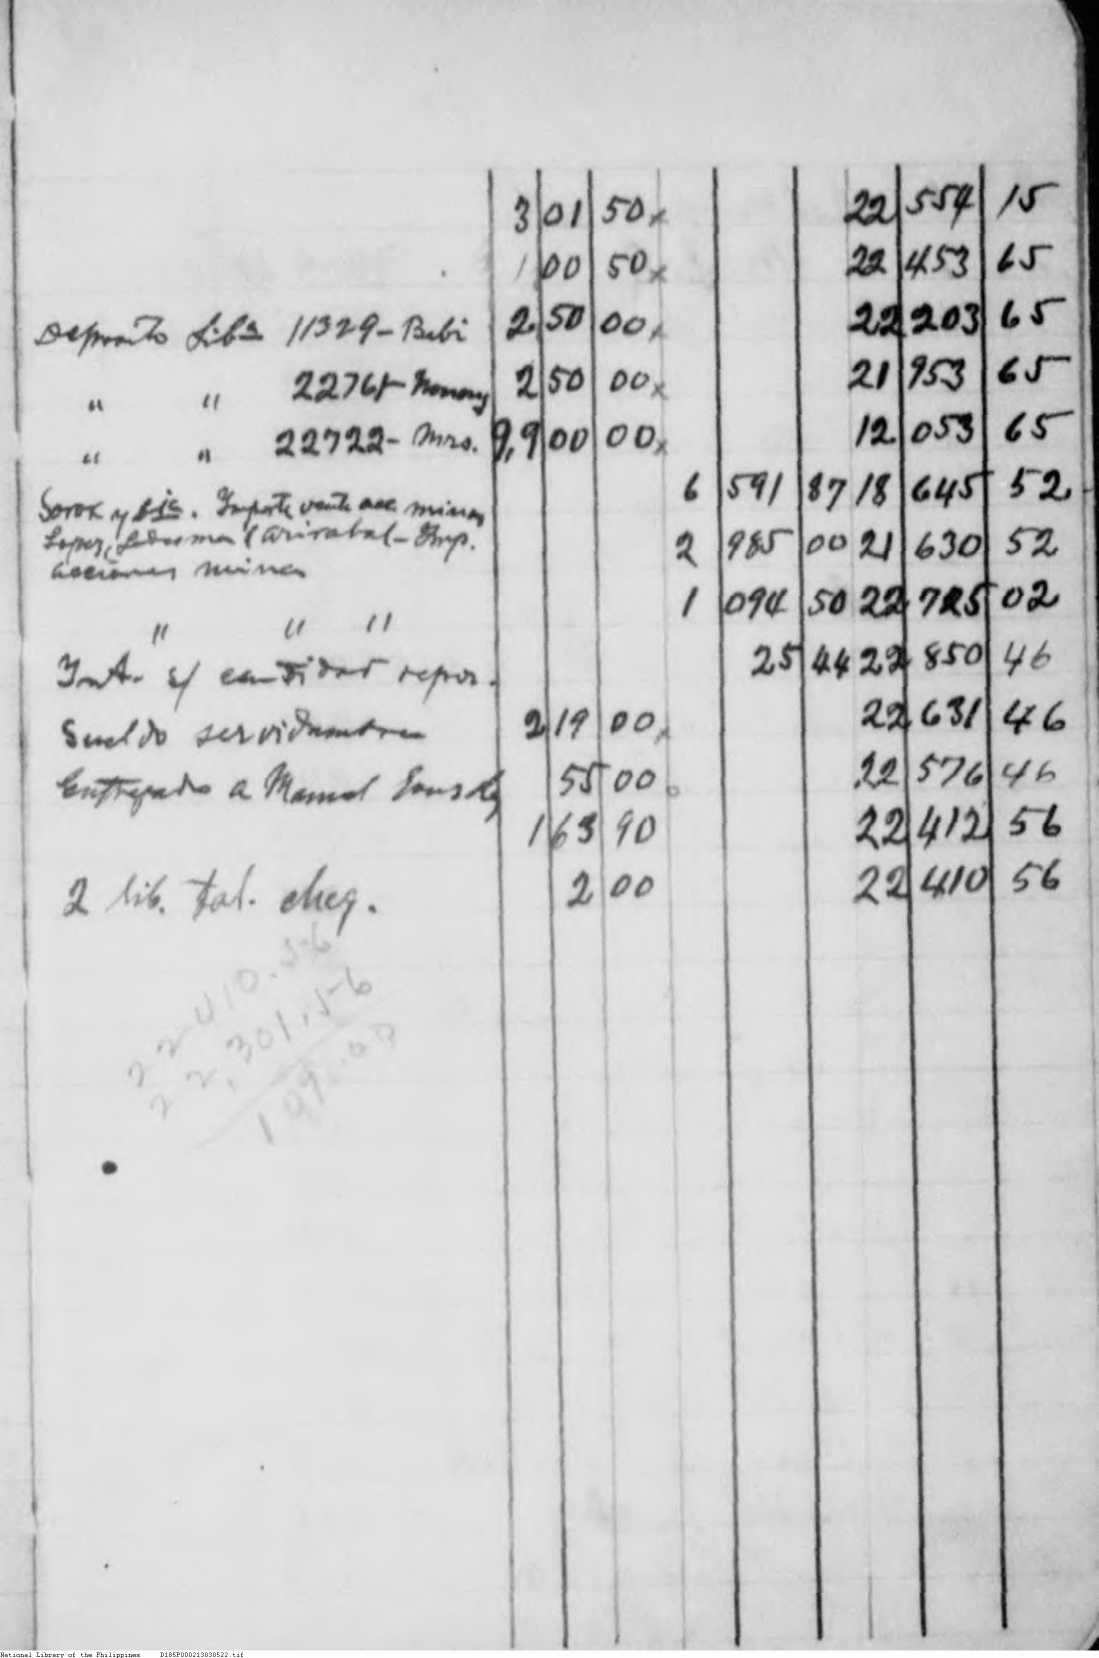 301 50 x 22 554 15
100 50 x 22 453 65
Deposito Lib. 11329 - Bebi 250 00 x 22 203 65
" " 22768 - Nonong 250 00 x 21 953 65
" " 22722 - Mrs. 9,900 00 x 12 053 65
Sorox y Cia. Importe venta acc. minas 6 591 87 18 645 52
Lopez, Ledesma & Arizabal - Imp. 2 985 00 21 630 52
acciones minas
" " " 1 094 50 22 725 02
Int. s/ cantidad repos. 25 44 22 850 46
Sueldo servidumbre 219 00 x 22 631 46
Entregado a Manuel 55 00 22 576 46
163 90 22 412 56
2 lib. tal. cheq. 2 00 22 410 56
22410.56
22,301.56
109.00
National Library of the Philippines D185P000213030522.tif